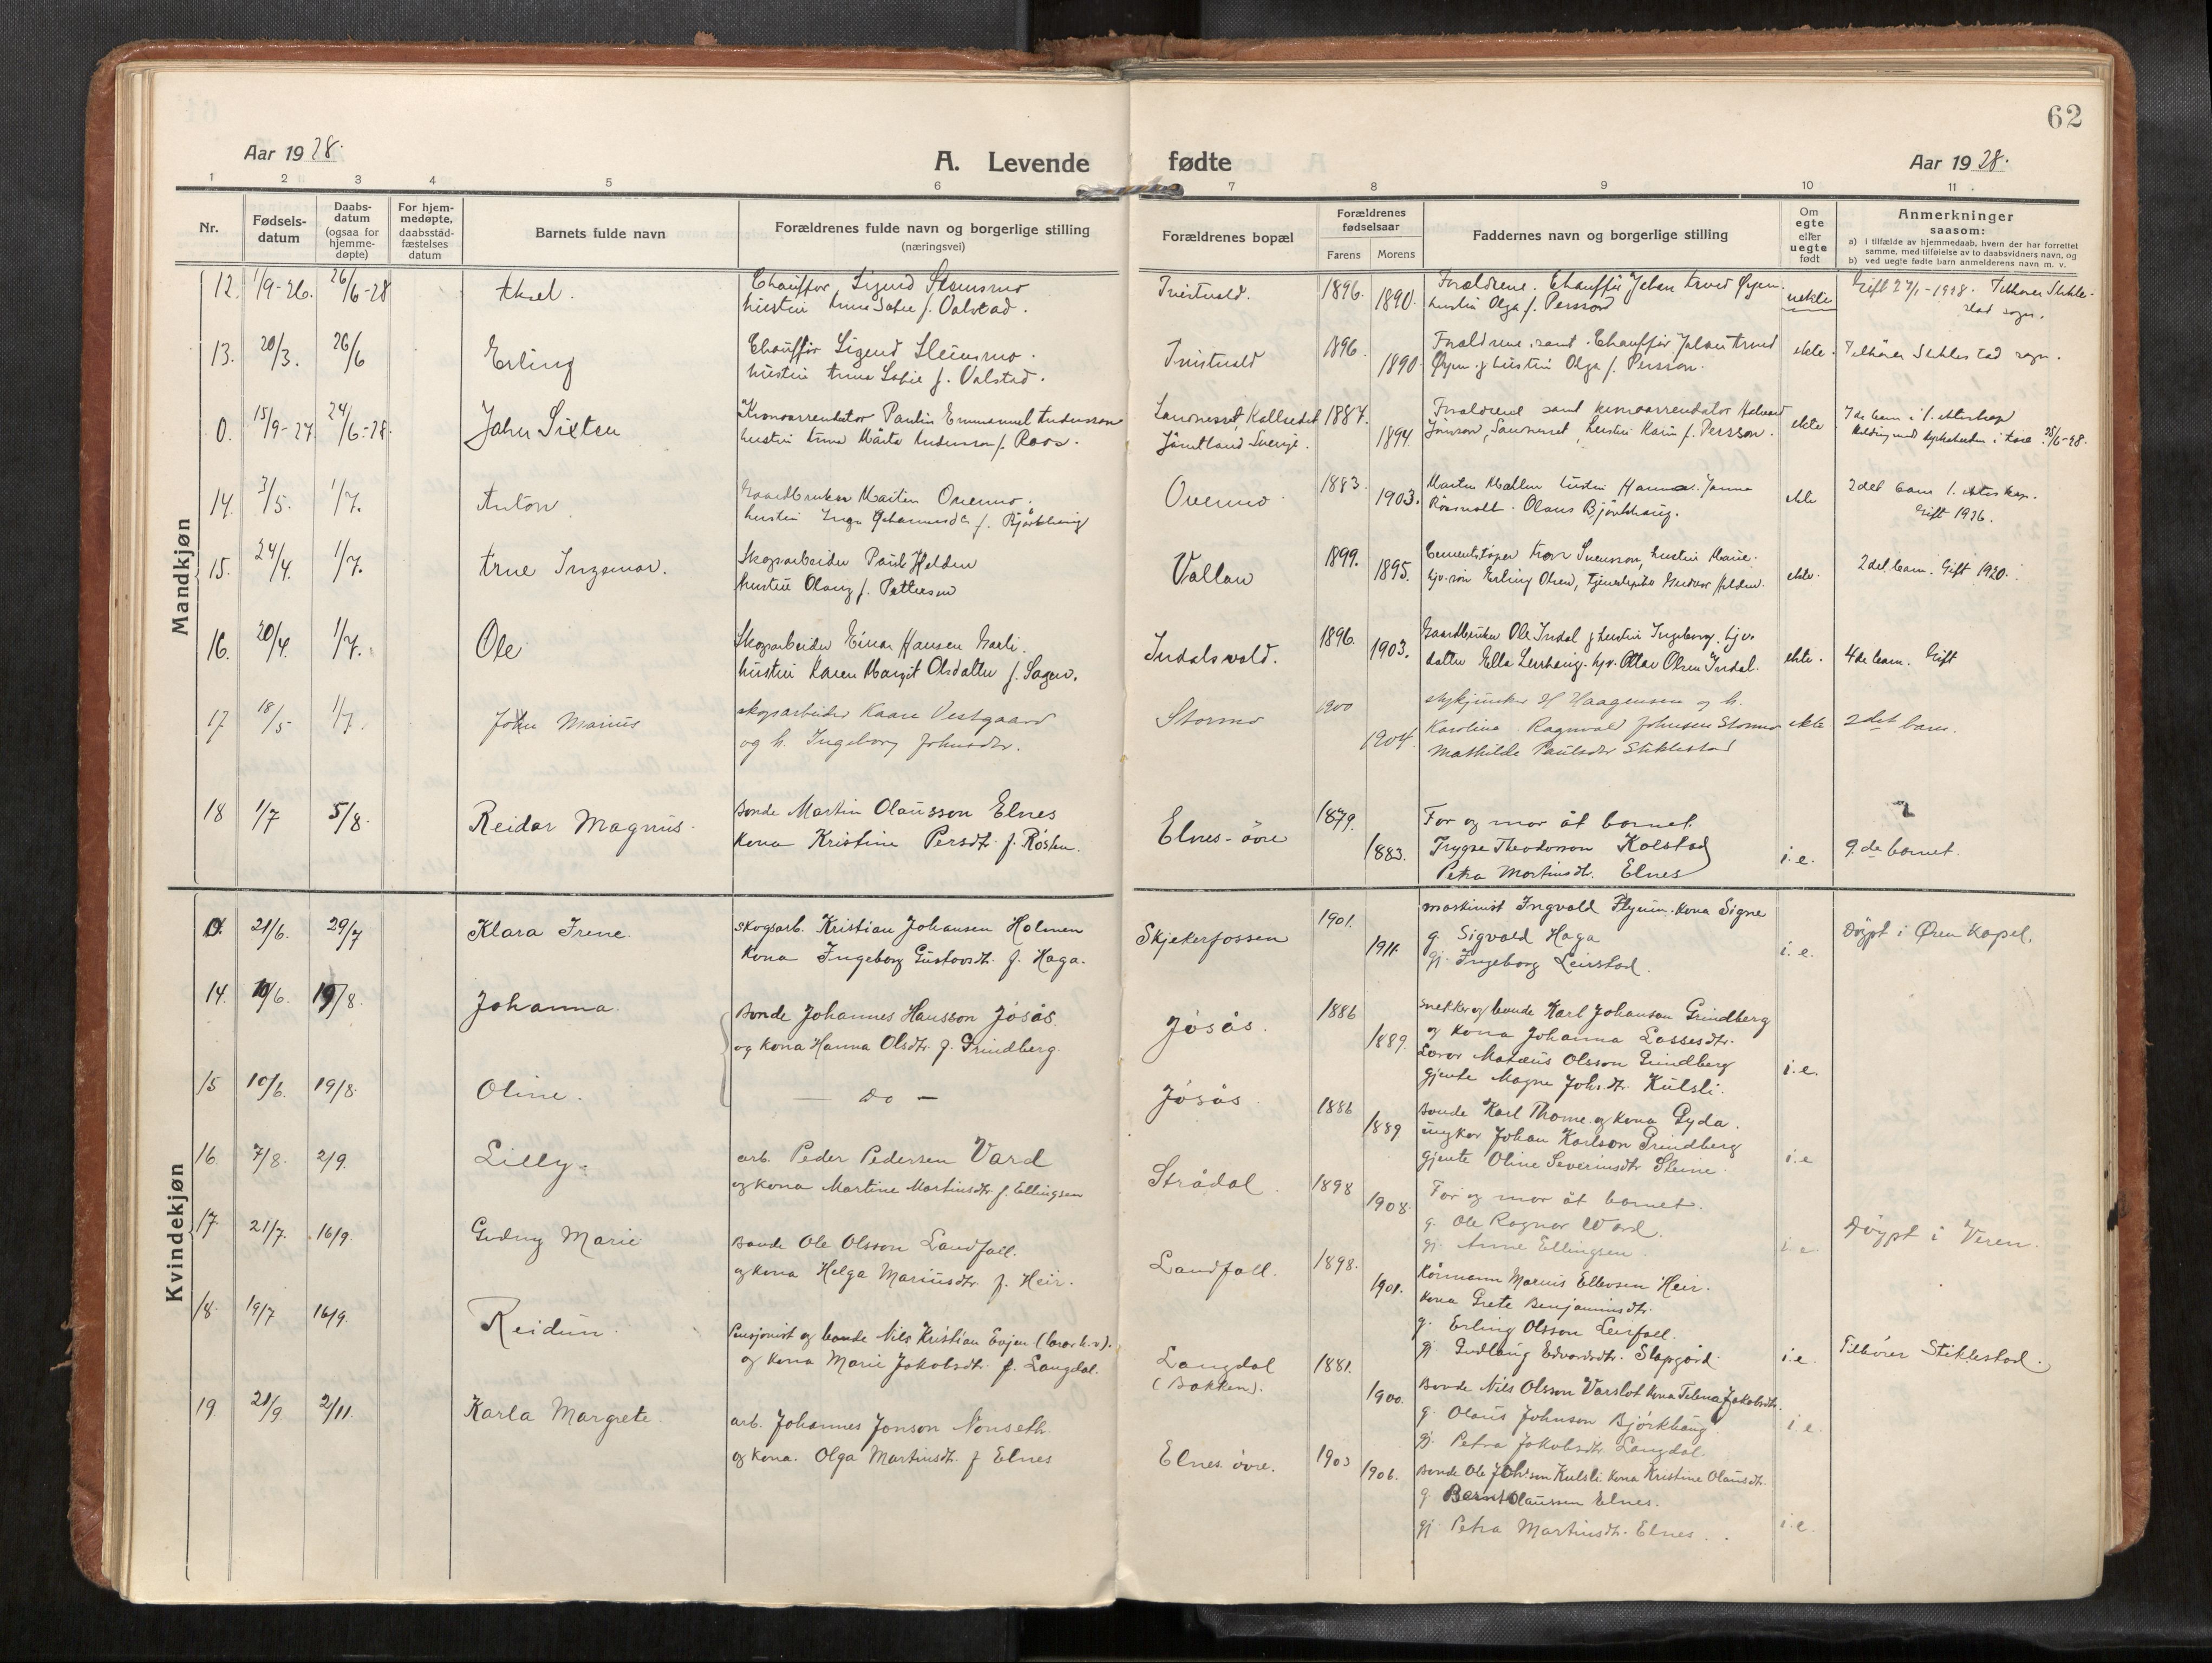 62
Aar 1928.
A. Levende fødte
Aar 1928.
1 2 3 4 5 6 7 8 9 10 11
Nr.
Fødsels-
datum
Daabs-
datum
(ogsaa for
hjemme-
døpte)
For hjem-
medøpte,
daabsstad-
fæstelses
datum
Barnets fulde navn
Forældrenes fulde navn og borgerlige stilling
(næringsvei)
Forældrenes bopæl
Forældrenes
fødselsaar
Farens Morens
Faddernes navn og borgerlige stilling
Om
egte
eller
uegte
født
Anmerkninger
saasom:
a) i tilfælde av hjemmedaab, hvem der har forrettet
samme, med tilføielse av to daabsvidners navn, og
b) ved uegte fødte barn anmelderens navn m. v.
Mandkjøn
12. 1/9-26. 26/6-28 Aksel.
Chauffør Sigurd Steinsmo
hustru Anna Sofie f. Valstad.
1896. 1890.
Forældrene. Chauffør Johan Øyen.
hustru Olga f. Persson
uekte
Gift 1928. Tilhører Stikle-
stad sogn.
13. 20/3. 26/6 Erling
Chauffør Sigurd Steinsmo.
hustru Anna Sofie f. Valstad.
1896. 1890
Forældrene samt Chauffør Johan
Øyen & hustru Olga f. Persson.
ekte.
Tilhører Stiklestad sogn.
0. 15/9-27 24/6-28. John Sixten
Kronoarrendator Paulin Emmanuel Andersson
hustru Anna Märta Andersson f. Roos.
Kallsedet
Jämtland Sverige.
1887. 1894.
Forældrene samt kronoarrendator
Jönsson, hustru Karin f. Persson.
ekte
7de barn i 1. ekteskap
14. 3/5. 1/7. Anton
Gaardbruker Martin Overmo.
hustru Inga f. Bjørkhaug
Overmo
1883. 1903.
Olaus Bjørkhaug.
ekte
2det barn 1. ekteskap.
Gift 1926.
15. 24/4. 1/7. Arne Ingemar.
Skogsarbeider Paul Helden
hustru Olaug f. Pettersen
Vollan
1899. 1895.
Svensson, hustru Marie.
Erling Olsen,
ekte.
2det barn. Gift 1920.
16. 20/4. 1/7. Ole
Skogsarbeider Einar Hansen
hustru Karen Margit Olsdatter f. Sagen.
Indalsvold.
1896. 1903.
Gaardbruker Ole Indal & hustru Ingeborg. hjv.
datter Ella hjv. Ottar Olsen Indal.
ekte.
4de barn. Gift
17 18/5 1/7. John Marius
skogsarbeider Kaare Vestgaard
og h. Ingeborg Johnsdtr.
Stormo
1900 1904.
H Haagensen og h.
Karoline. Ragnvald Johnsen Stormo
Mathilde Paulsdtr Stiklestad
ekte
2det barn.
18 1/7 5/8. Reidar Magnus.
Bonde Martin Olausson Elnes
Kona Kristine Persdtr. f. Rösten.
Elnes-övre
1879. 1883.
Far og mor åt barnet.
Trygve Theodorson Kolstad
Petra Martinsdtr. Elnes
i.e.
9.de barnet.
Kvindekjøn
0. 21/6. 29/7 Klara Irene.
skogsarb. Kristian Johansen Holmen
Kona Ingeborg Gustavsdtr. f. Haga.
Skjekerfossen
1901. 1911.
maskinist Ingvald Flyum. Kona Signe
g. Sigvald Haga
gj. Ingeborg Leirstad.
i.e.
Döypt i Ören Kapel.
14. 10/6. 19/8. Johanna.
Bonde Johannes Hansson Jösås.
og kona Hanna Olsdtr. f. Grindberg.
Jösås.
1886 1889.
snekker og bonde Karl Johanson Grindberg
og Kona Johanna Lassesdtr.
Lærar Matæus Olsson Grindberg
gjente Magne Johsdtr. Kulsli.
i.e.
15 10/6. 19/8. Oline.
— Do —
Jösås
1886 1889
Bonde Karl Thorne og Kona Gyda.
ungkar Johan Karlson Grindberg
gjente Oline Severinsdtr Steine.
i.e
16 7/8. 2/9. Lilly.
arb. Peder Pedersen Vard
og kona Martine Martinsdtr. f. Ellingsen
Strådal.
1898 1908.
Far og mor åt barnet.
g. Ole Ragnar Ward.
gj. Anne Ellingsen.
i.e.
Döypt i Veren.
17 21/7. 16/9. Gudny Marie
Bonde Ole Olsson Landfall.
og kona Helga Mariusdtr. f. Heir.
Landfall.
1898. 1901.
Kårmann Marius Ellevsen Heir.
Kona Grete Benjaminsdtr.
g. Erling Olsson Leirfall.
gj. Gudlaug Edvardsdtr. Slapgård.
i.e.
18 19/7 16/9. Reidun.
Pensjonist og bonde Nils Kristian Evjen
og kona Marie Jakobsdtr. f. Langdal.
Langdal
(Bakken).
1881. 1900.
Bonde Nils Olsson Varslot kona Jakobsdtr.
g. Olaus Johnson Björkhaug
gj. Petra Jakobsdtr Langdal.
i.e.
Tilhörer Stiklestad.
19. 21/9. 2/11. Karla Margrete.
arb. Johannes Jonson Nonseth.
og kona. Olga Martinsdtr. f Elnes
Elnes övre.
1903 1906.
Bonde Ole Johsson Kulsli Kona Kristine Olausdtr.
g. Bernt Olaussen Elnes.
gj. Petra Martinsdtr. Elnes.
i.e.